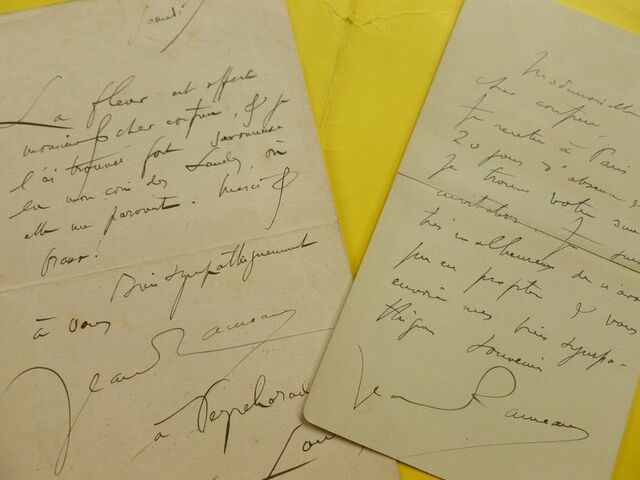 Samedi
La fleur est offerte
monsieur & cher confrère, & je
l'ai trouvée fort savoureuse
en mon coin des Landes, où
elle me parvint. Merci &
bravo!
Bien sympathiquement
à vous
Jean Rameau
à Peyrehorade
Lan
Mademoiselle
cher confrère,
Je rentre à Paris
20 jours d'absence &
Je trouve votre
invitation. Je suis
très malheureux de n'avoir
pu en profiter & vous
envoie mes bien sympa-
thiques souvenirs
Jean Rameau